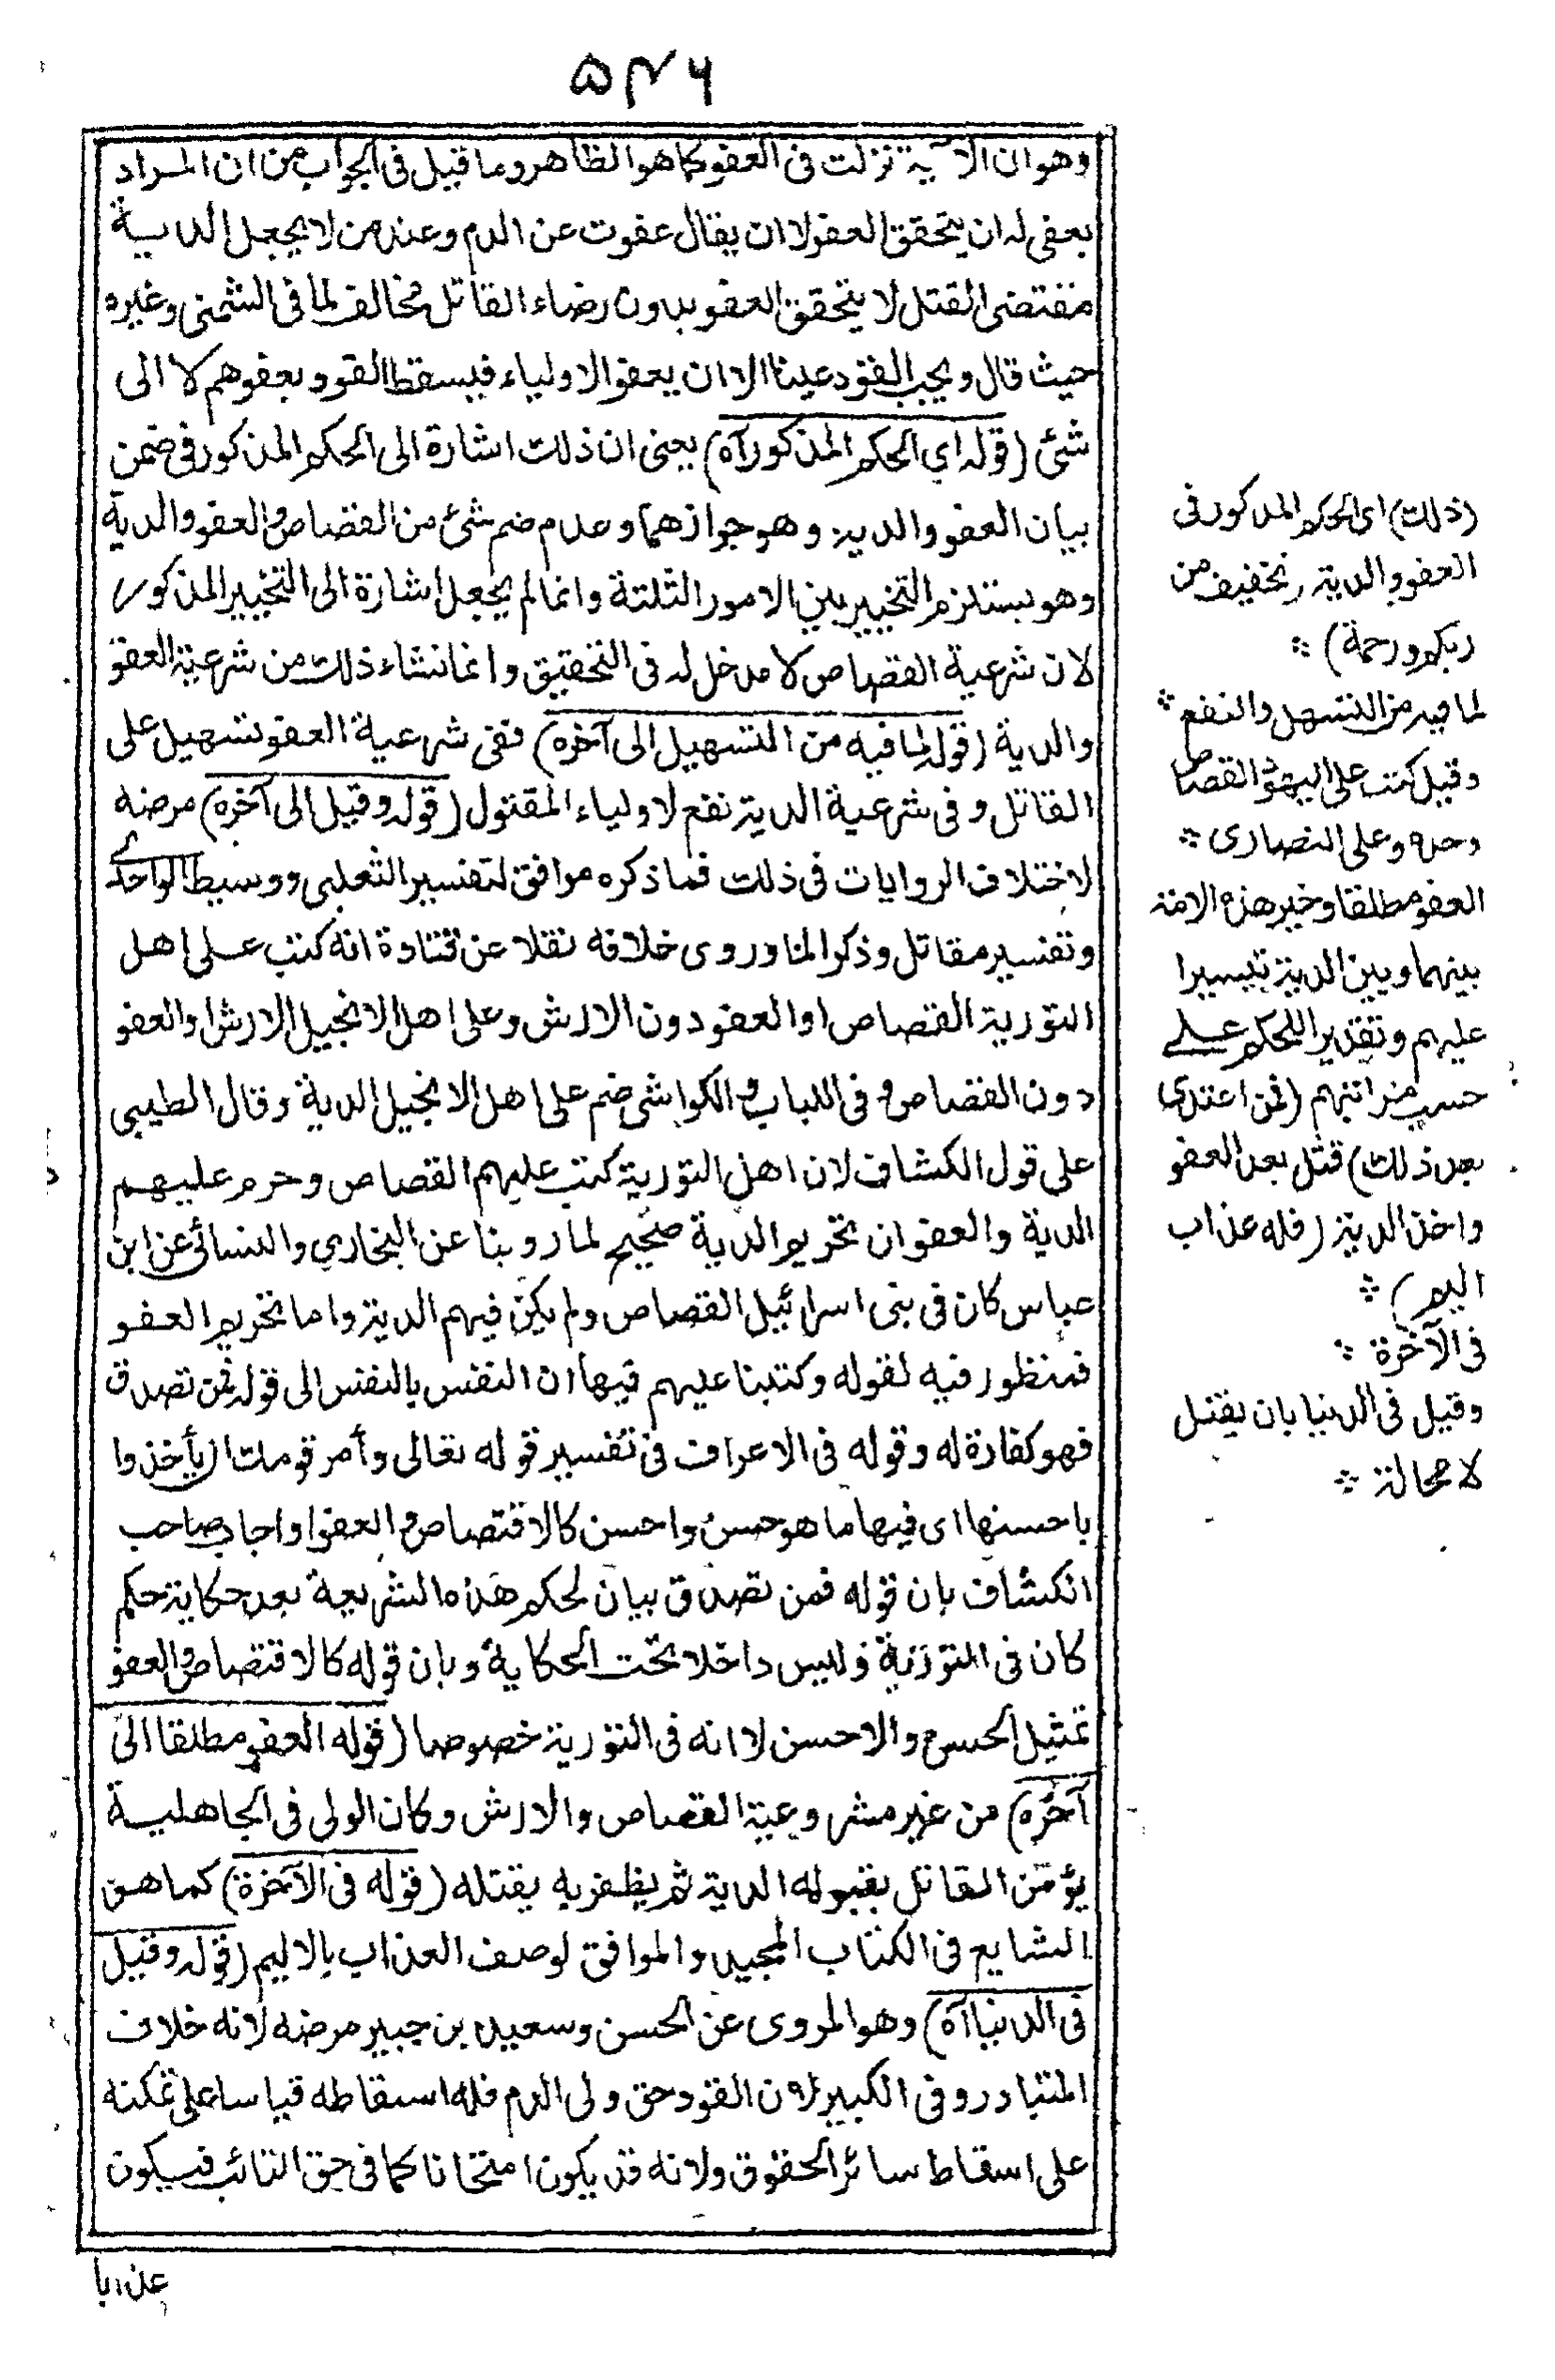 ۵۴۶
وهو ان الآية نزلت فى العفو كما هو الظاهر وما قيل فى الجواب من ان المراد
بعفى له ان يتحقق العفو لا ان يقال عفوت عن الدم وعند من لا يجعل الدية
مقتضى القتل لا يتحقق العفو بدون رضاء القاتل مخالف لما فى الشمنى وغيره
حيث قال ويجب القود عينا الا ان يعفو الاولياء فيسقط القود بعفوهم لا الى
شئ (قوله اي الحكم المذكور آه) يعنى ان ذلك اشارة الى الحكم المذكور فى ضمن
بيان العفو والدية وهو جوازهما وعدم ضم شئ من القصاص والعفو والدية
وهو يستلزم التخيير بين الامور الثلثة وانما لم يجعل اشارة الى التخيير المذكور
لان شرعية القصاص لا مدخل له فى التخفيق وانما نشاء ذلك من شرعية العفو
والدية (قوله لما فيه من التسهيل الى آخره) ففى شرعية العفو تسهيل على
القاتل وفى شرعية الدية نفع لاولياء المقتول (قوله وقيل الى آخره) مرضه
لاختلاف الروايات فى ذلك فما ذكره موافق لتفسير الثعلبى ووسيط الواحدے
وتفسير مقاتل وذكر الماوروى خلافه نقلا عن قتادة انه كتب على اهل
التورية القصاص او العفو دون الارش وعلى اهل الانجيل الارش او العفو
دون القصاص وفى اللباب والكواشى ضم على اهل الانجيل الدية وقال الطيبى
على قول الكشاف لان اهل التورية كتب عليهم القصاص وحرم عليهم
الدية والعفو ان تحريم الدية صحيح لما روينا عن البخاري والنسائى عن ابن
عباس كان فى بنى اسرائيل القصاص ولم يكن فيهم الدية واما تحريم العفو
فمنظور فيه لقوله وكتبنا عليهم فيها ان النفس بالنفس الى قوله فمن تصدق
فهو كفارة له وقوله فى الاعراف فى تفسير قوله تعالى وأمر قومك ا يأخذوا
باحسنها اى فيها ما هو حسن واحسن كالاقتصاص والعفو واجاب صاحب
الكشاف بان قوله فمن تصدق بيان لحكم هذه الشريعة بعد حكاية حكم
كان فى التورية وليس داخلا تحت الحكاية وبان قوله كالاقتصاص والعفو
تمثيل الحسن والاحسن لا انه فى التورية خصوصا (قوله العفو مطلقا الى
آخره) من غير مشروعية القصاص والارش وكان الولى فى الجاهلية
يؤمن القاتل بقبوله الدية ثم يظفر به يقتله (قوله فى الآخرة) كما هن
الشايع فى الكتاب المجيد والموافق لوصف العذاب بالاليم (قوله وقيل
فى الدنيا آه) وهو المروى عن الحسن وسعيد بن جبير مرضه لانه خلاف
المتبادر وفى الكبير لان القود حق ولى الدم فله اسقاطه قياسا على تمكنه
على اسقاط سائر الحقوق ولانه قد يكون امتحانا كما فى حق التائب فيكون
عذابا
(ذلك) اى الحكم المذكور فى
العفو والدية (تخفيف من
ربكم ورحمة) ؞
لما فيه من التسهل والنفع ؞
وقيل كتب على اليهود القصاص
وحده وعلى النصارى ؞
العفو مطلقا وخير هذه الامة
بينهما وبين الدية تيسيرا
عليهم وتقديرا للحكم علے
حسب مراتبهم (فمن اعتدى
بعد ذلك) قتل بعد العفو
واخذ الدية (فله عذاب
اليم) ؞
فى الآخرة ؞
وقيل فى الدنيا بان يقتل
لا محالة ؞